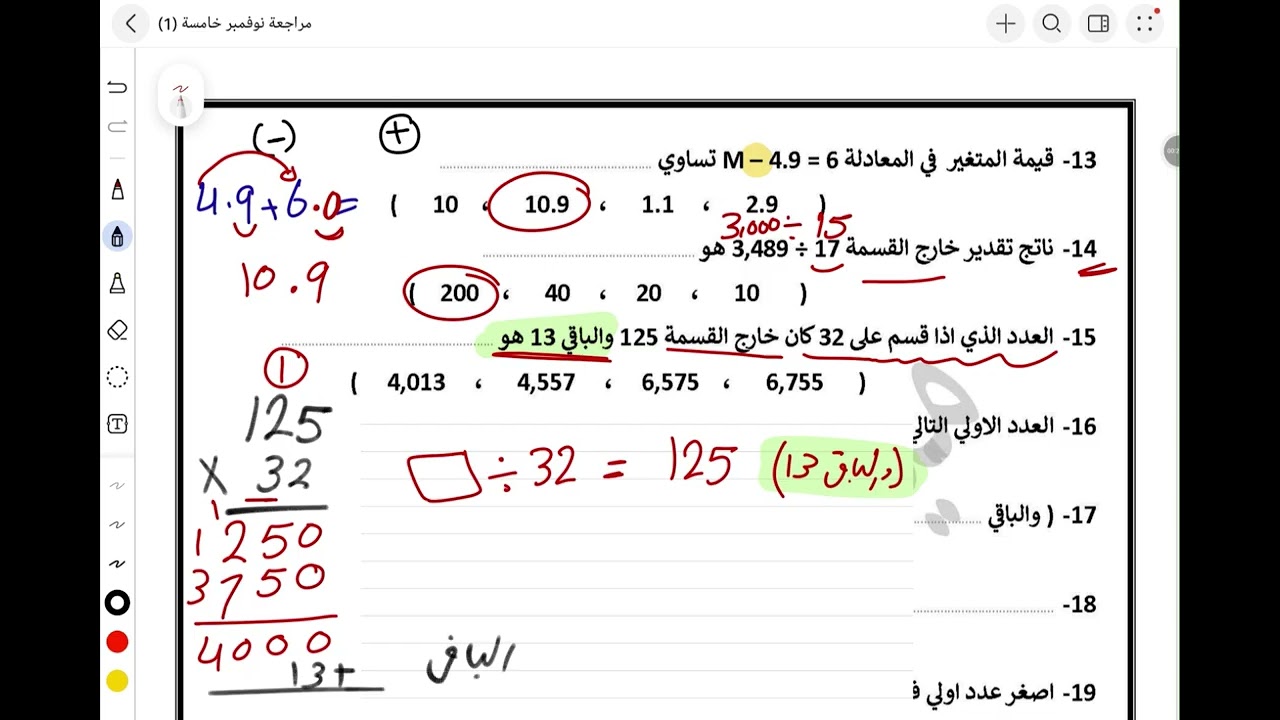 مراجعة نوفمبر خامسة (1)
(-) +
13- قيمة المتغير في المعادلة M – 4.9 = 6 تساوي
4.9+6.0=
( 2.9 ، 1.1 ، 10.9 ، 10 )
3,000÷ 15
14- ناتج تقدير خارج القسمة 17 ÷ 3,489 هو
10.9
( 10 ، 20 ، 40 ، 200 )
15- العدد الذي اذا قسم على 32 كان خارج القسمة 125 والباقي 13 هو
1
( 6,755 ، 6,575 ، 4,557 ، 4,013 )
125
16- العدد الاولي التالي
X 32
÷ 32 = 125 (والباقي 13)
1
1250
17- ( والباقي
3750
18-
4000
13+ الباقي
19- اصغر عدد اولي